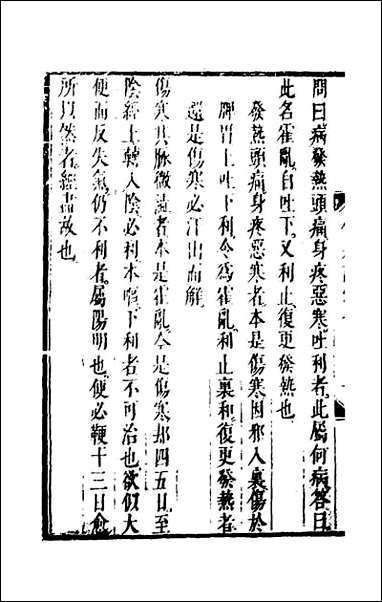 問曰病發熱頭痛身疼惡寒吐利者此屬何病答曰
此名霍亂自吐下又利止復更發熱也
發熱頭痛身疼惡寒者本是傷寒因邪入裏傷於
脾胃上吐下利令為霍亂利止裏和復更發熱者
還是傷寒必汗出而解
傷寒其脉微濇者本是霍亂今是傷寒却四五日至
陰經上轉入陰必利本嘔下利者不可治也欲似大
便而反失氣仍不利者屬陽明也便必鞕十三日愈
所以然者經盡故也